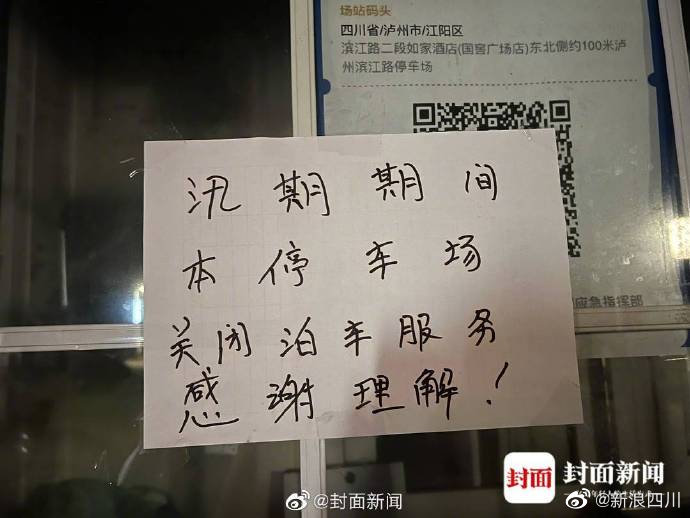 场站码头
四川省/泸州市/江阳区
滨江路二段如家酒店(国窖广场店)东北侧约100米泸
州滨江路停车场
汛期期间
本停车场
关闭泊车服务
感谢理解!
应急指挥部
封面 封面新闻
@封面新闻
@新浪四川